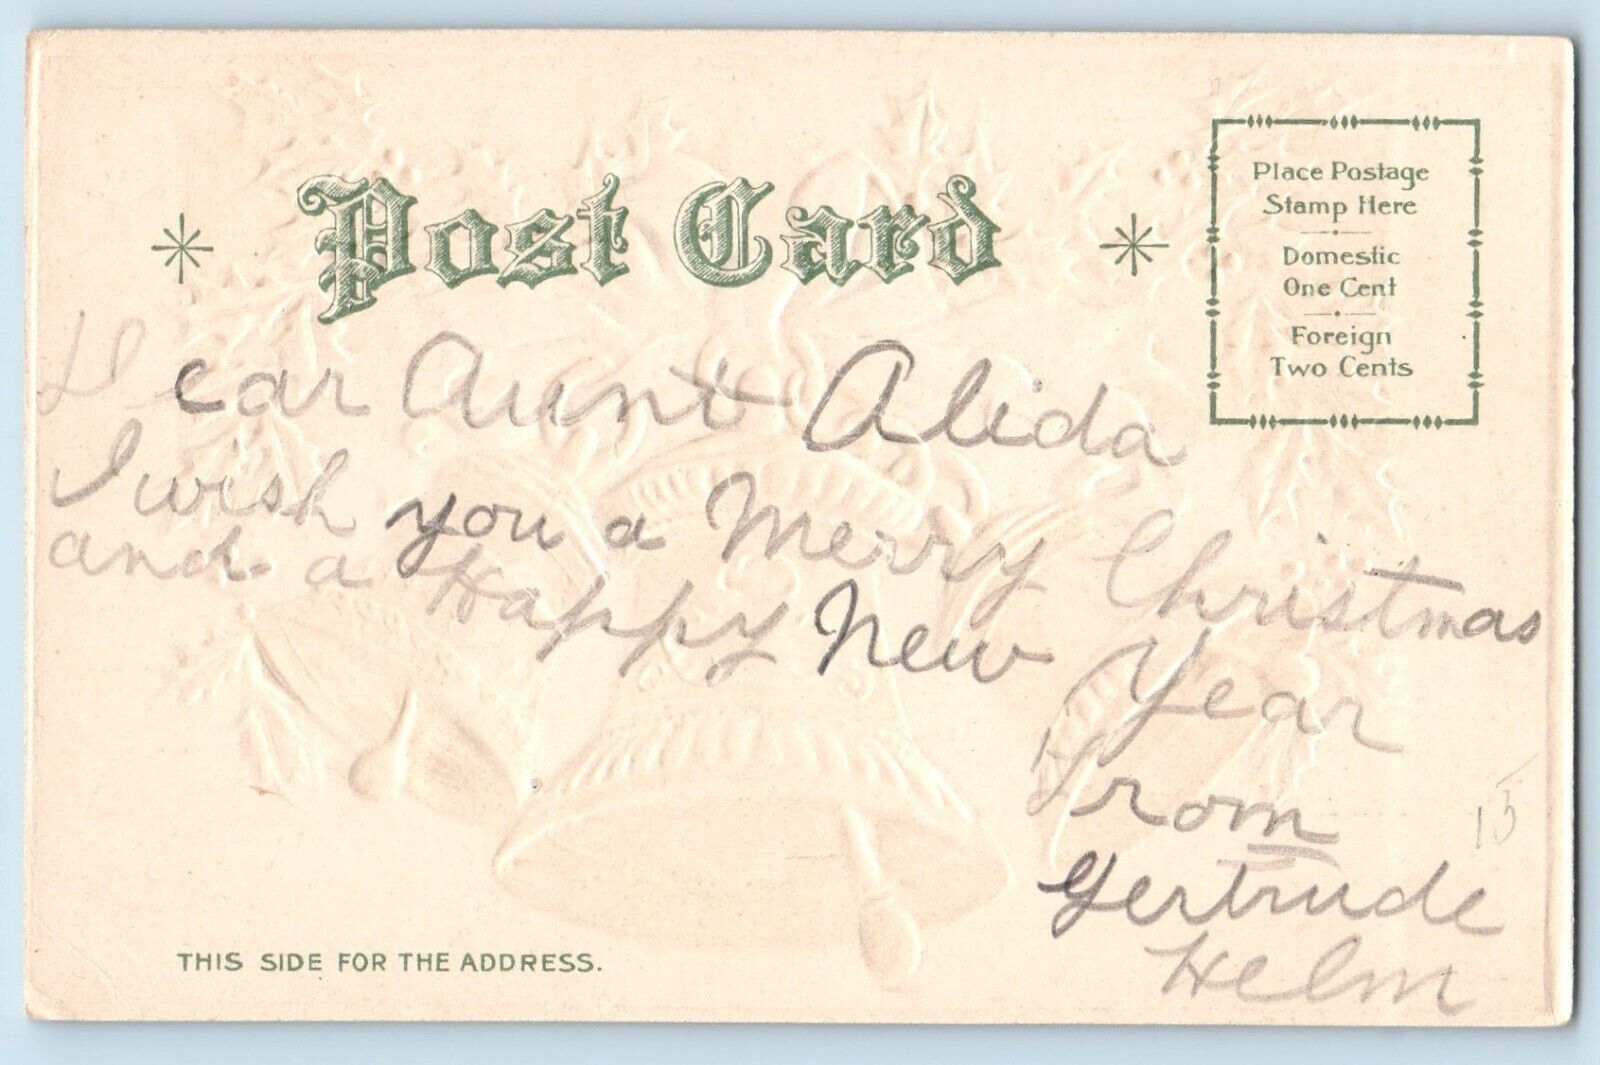 Post Card
Place Postage
Stamp Here
Domestic
One Cent
Foreign
Two Cents
Dear Aunt Alida
I wish you a Merry Christmas
and a Happy New Year
From
Gertrude
Helm
15
THIS SIDE FOR THE ADDRESS.